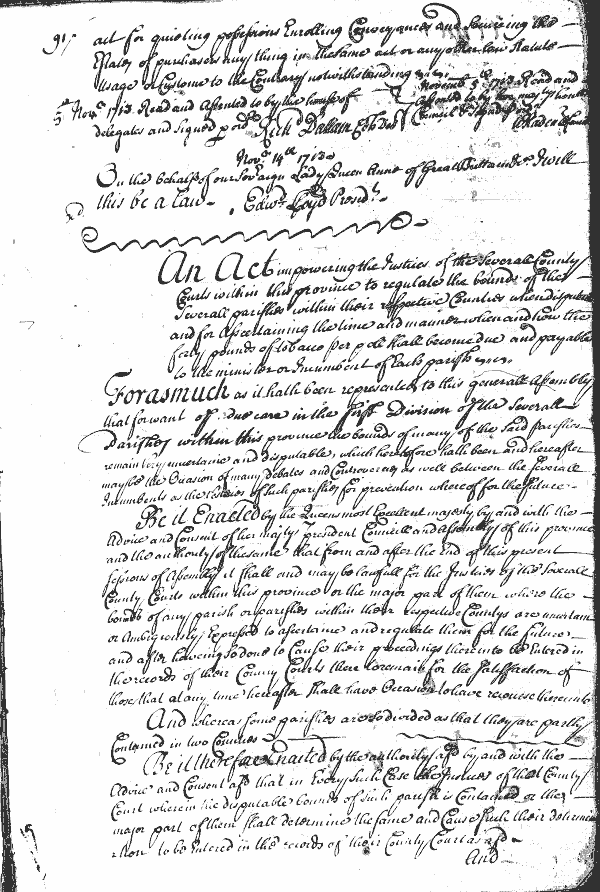 91/ act for quieting possessions Enrolling Conveyances and Securing the
Estates of purchasers any thing in the same act or any other Law Statute
Usage or Custome to the Contrary notwithstanding
Novr 1713. Read and Assented to by the house of
delegates and signed p ord Richd Dallam Cl h Del
November 5th 1713. Read and
assented to by her majtys honble
Council
Novr 14th 1713
On the behalfe of our Soveraign Lady Queen Anne of Great Brittain &c I will
this be a Law. Edwd Lloyd Presidt.
An Act impowering the Justices of the Severall County
Courts within this province to regulate the bounds of the
Severall parishes within their respective Counties when disputed
and for Ascertaining the time and manner when and how the
forty pounds of tobacco per poll shall become due and payable
to the minister or Incumbent of Each parish
Forasmuch as it hath been represented to this generall Assembly
that for want of due care in the first Division of the Severall
Parishes within this province the bounds of many of the said parishes
remain very uncertaine and disputable, which heretofore hath been and hereafter
may be the Occasion of many debates and Controversies as well between the severall
Incumbents as the Vestries of such parishes for prevention whereof for the future
Be it Enacted by the Queens most Excellent majesty by and with the
Advice and Consent of her majtys president Councill and Assembly of this province
and the authority of the same that from and after the End of this present
sessions of Assembly it shall and may be lawfull for the Justices of the Severall
County Courts within this province or the major part of them where the
bounds of any parish or parishes within their respective Countys are uncertain
or Ambiguously Expressed to ascertaine and regulate them for the future
and after haveing so done to Cause their proceedings therein to be Entered in
the records of their County Courts there to remain for the satisfaction of
those that at any time hereafter shall have Occasion to have recourse thereunto
And whereas some parishes are so divided as that they are partly
Contained in two Counties
Be it therefore Enacted by the authority afd by and with the
Advice and Consent afd that in Every such Case the Justices of that County
Court wherein the disputable bounds of such parish is Contained or the
major part of them shall determine the same and Cause such their determi
nation to be Entered in the records of their County Court as afd
And